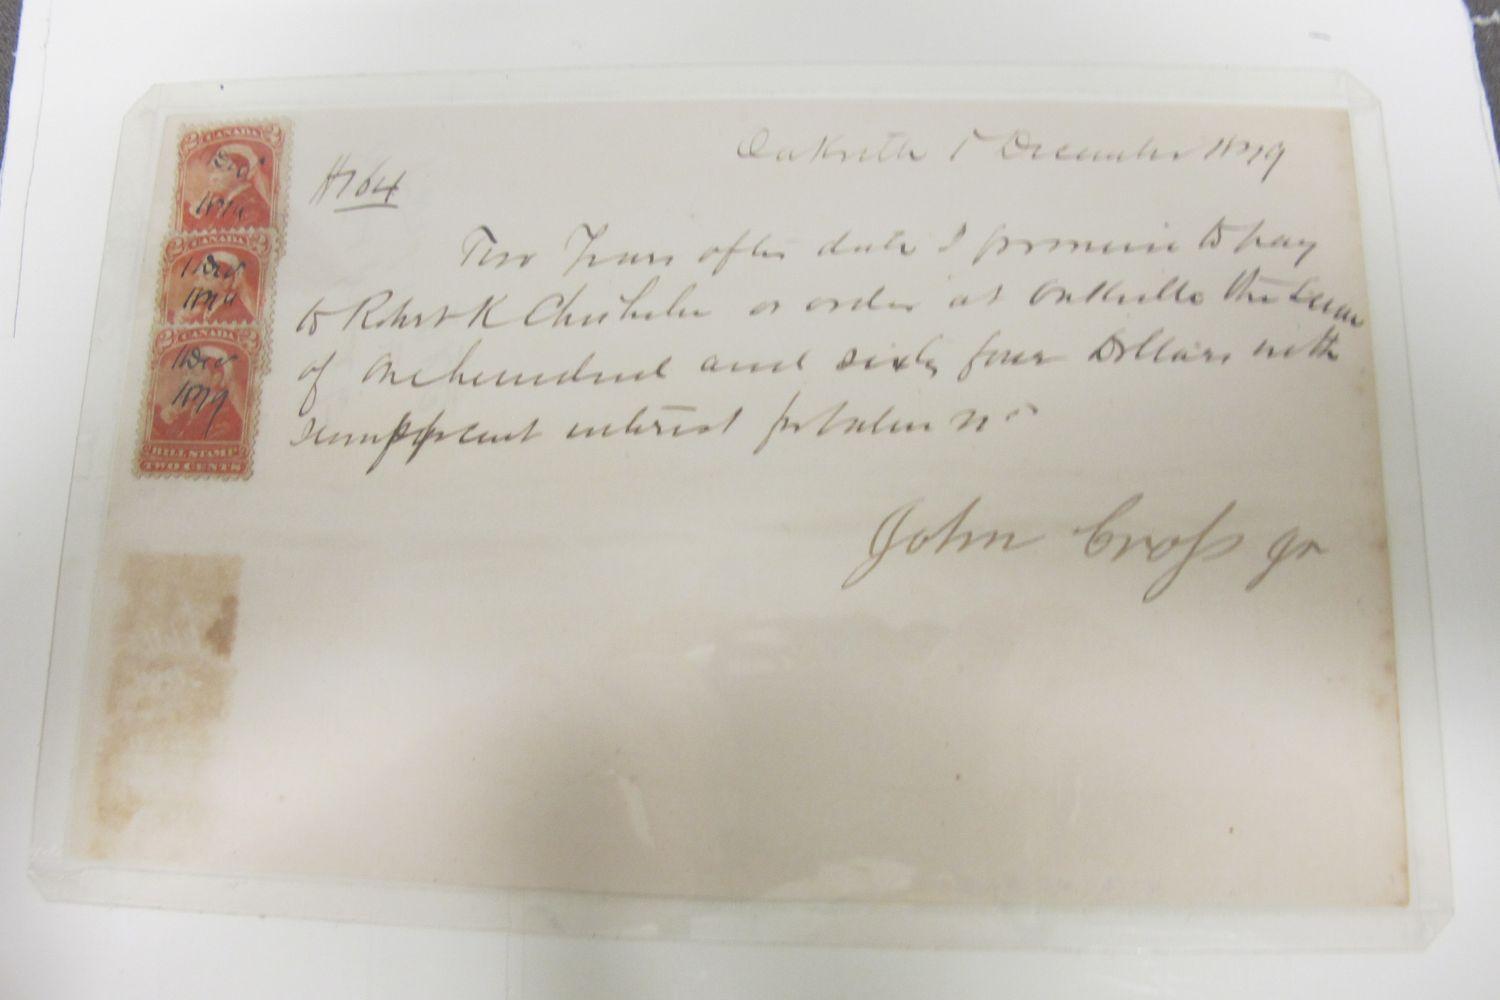 2 CANADA 2
Dec
1879
2 CANADA 2
1 Dec
1879
2 CANADA 2
1 Dec
1879
BILL STAMP
TWO CENTS
Oakville 1 December 1879
$164
Two Years after date I promise to pay
to Robert K Chisholm or order at Oakville the Sum
of One hundred and sixty four Dollars with
per cent interest per
John Cross Jr